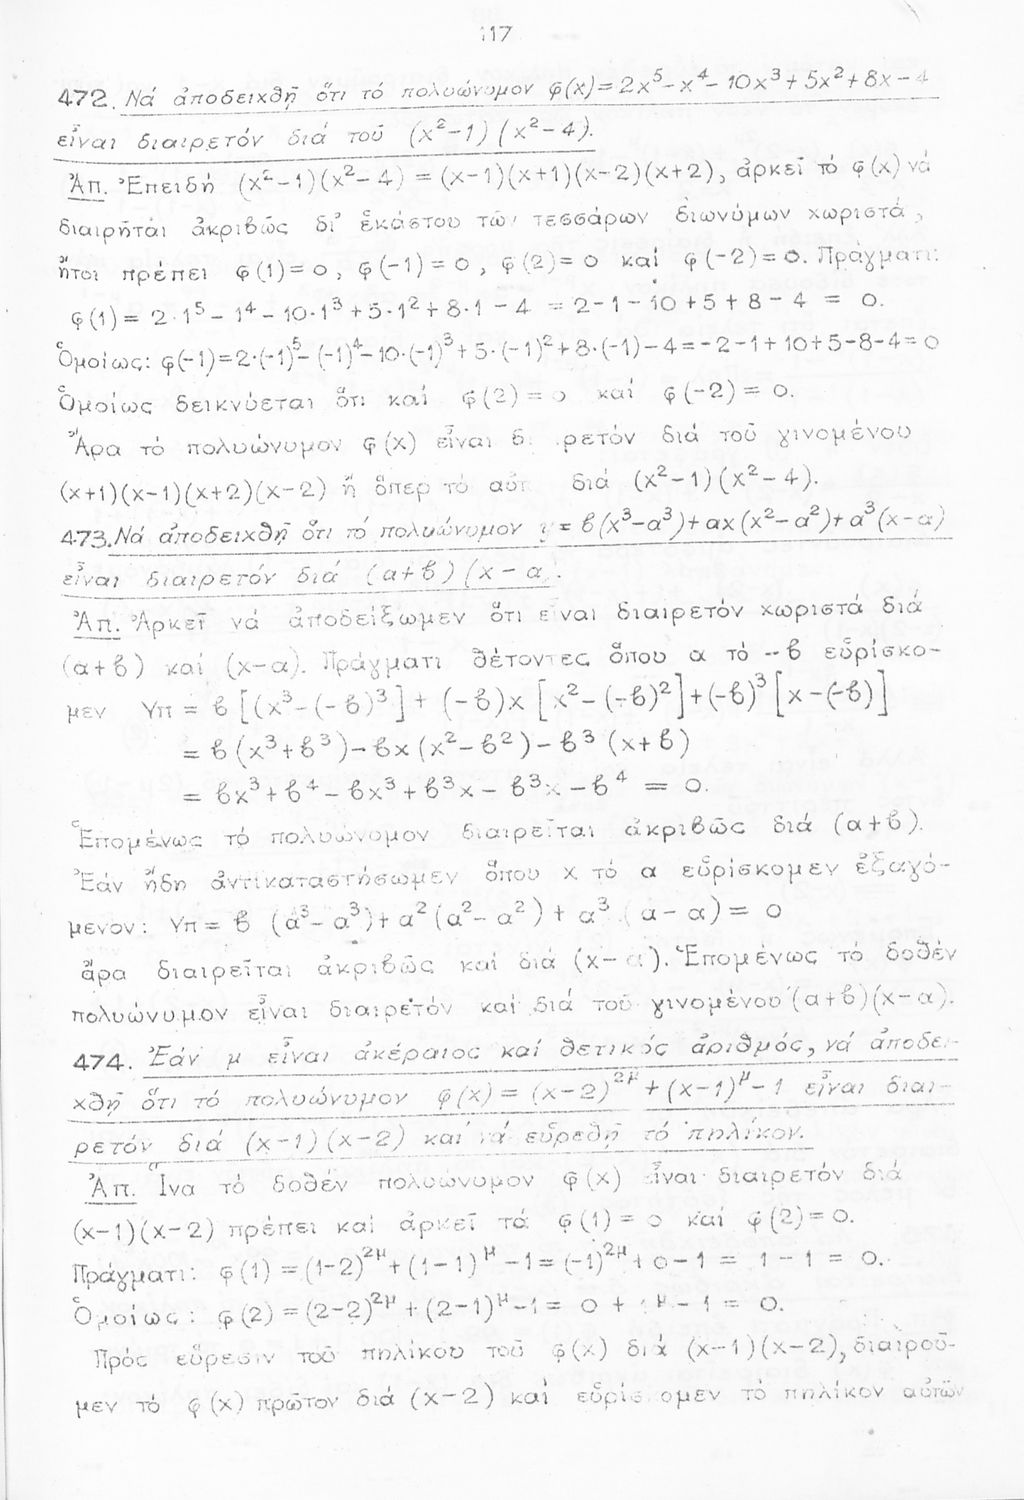 117
472. Νά ἀποδειχθῇ ὅτι τό πολυώνυμον φ(x)=2x⁵-x⁴-10x³+5x²+8x-4
εἶναι διαιρετόν διά τοῦ (x²-1)(x²-4).
Ἀπ. Ἐπειδή (x²-1)(x²-4) = (x-1)(x+1)(x-2)(x+2), ἀρκεῖ τό φ(x) νά
διαιρῆται ἀκριβῶς δι' ἑκάστου τῶν τεσσάρων διωνύμων χωριστά,
ἤτοι πρέπει φ(1)=0, φ(-1)=0, φ(2)=0 καί φ(-2)=0. Πράγματι:
φ(1) = 2·1⁵ - 1⁴ - 10·1³ + 5·1² + 8·1 - 4 = 2-1-10+5+8-4 = 0.
Ὁμοίως: φ(-1)=2·(-1)⁵-(-1)⁴-10·(-1)³+5·(-1)²+8·(-1)-4=-2-1+10+5-8-4=0
Ὁμοίως δεικνύεται ὅτι καί φ(2)=0 καί φ(-2)=0.
Ἄρα τό πολυώνυμον φ(x) εἶναι διαιρετόν διά τοῦ γινομένου
(x+1)(x-1)(x+2)(x-2) ἤ ὅπερ τό αὐτ διά (x²-1)(x²-4).
473. Νά ἀποδειχθῇ ὅτι τό πολυώνυμον y = β(x³-α³)+αx(x²-α²)+α³(x-α)
εἶναι διαιρετόν διά (α+β)(x-α).
Ἀπ. Ἀρκεῖ νά ἀποδείξωμεν ὅτι εἶναι διαιρετόν χωριστά διά
(α+β) καί (x-α). Πράγματι θέτοντες ὅπου α τό -β εὑρίσκο-
μεν Υπ = β[(x³-(-β)³]+(-β)x[x²-(-β)²]+(-β)³[x-(-β)]
= β(x³+β³)-βx(x²-β²)-β³(x+β)
= βx³+β⁴-βx³+β³x-β³x-β⁴ = 0.
Ἑπομένως τό πολυώνυμον διαιρεῖται ἀκριβῶς διά (α+β).
Ἐάν ἤδη ἀντικαταστήσωμεν ὅπου x τό α εὑρίσκομεν ἐξαγό-
μενον: Υπ = β (α³-α³)+α²(α²-α²)+α³(α-α) = 0
ἄρα διαιρεῖται ἀκριβῶς καί διά (x-α). Ἑπομένως τό δοθέν
πολυώνυμον εἶναι διαιρετόν καί διά τοῦ γινομένου (α+β)(x-α).
474. Ἐάν μ εἶναι ἀκέραιος καί θετικός ἀριθμός, νά ἀποδει-
χθῇ ὅτι τό πολυώνυμον φ(x) = (x-2)²ᵘ + (x-1)ᵘ - 1 εἶναι διαι-
ρετόν διά (x-1)(x-2) καί νά εὑρεθῇ τό πηλίκον.
Ἀπ. Ἵνα τό δοθέν πολυώνυμον φ(x) εἶναι διαιρετόν διά
(x-1)(x-2) πρέπει καί ἀρκεῖ τά φ(1)=0 καί φ(2)=0.
Πράγματι: φ(1) = (1-2)²ᵘ + (1-1)ᵘ - 1 = (-1)²ᵘ + 0 - 1 = 1 - 1 = 0.
Ὁμοίως: φ(2) = (2-2)²ᵘ + (2-1)ᵘ - 1 = 0 + 1ᵘ - 1 = 0.
Πρός εὕρεσιν τοῦ πηλίκου τοῦ φ(x) διά (x-1)(x-2), διαιροῦ-
μεν τό φ(x) πρῶτον διά (x-2) καί εὑρίσκομεν τό πηλίκον αὐτῶν